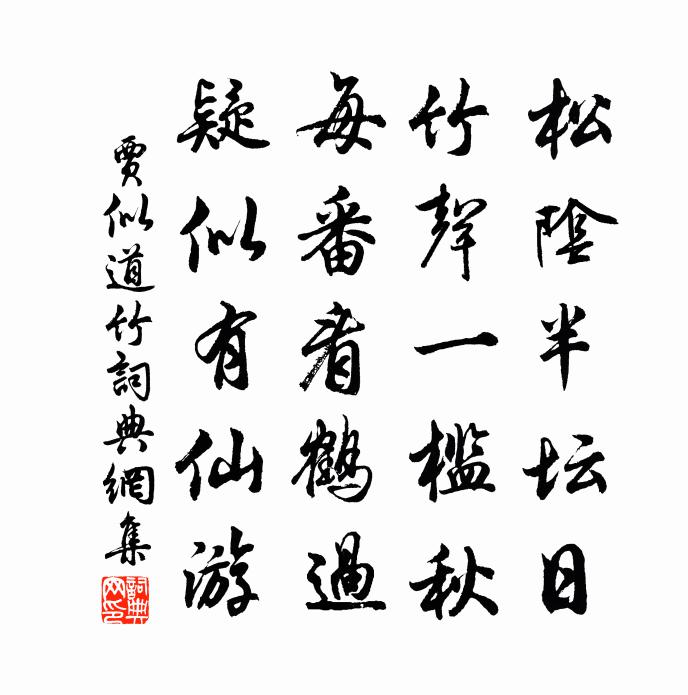 松陰半坛日
竹聲一槛秋
每番看鶴過
疑似有仙游
賈似道竹詞典網集
詞典网印